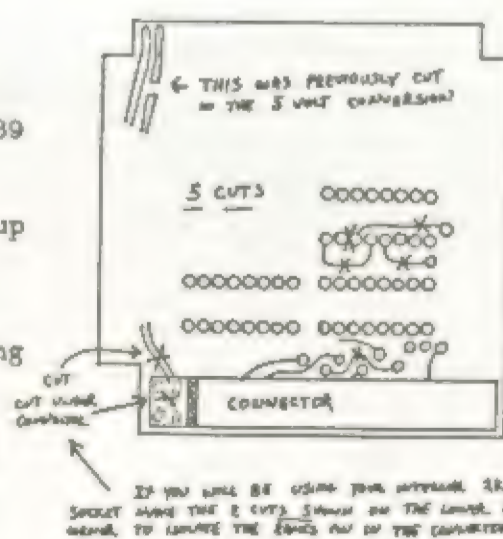 ← THIS WAS PREVIOUSLY CUT
IN THE 5 VOLT CONVERSION?
39
5 CUTS
up
ng
CUT
CUT UNDER
CONNECTOR
IF YOU WILL BE USING YOUR INTERNAL
SOCKET MAKE THE 2 CUTS SHOWN ON THE LOWER
TO LOCATE THE ON IN THE CONNECTOR